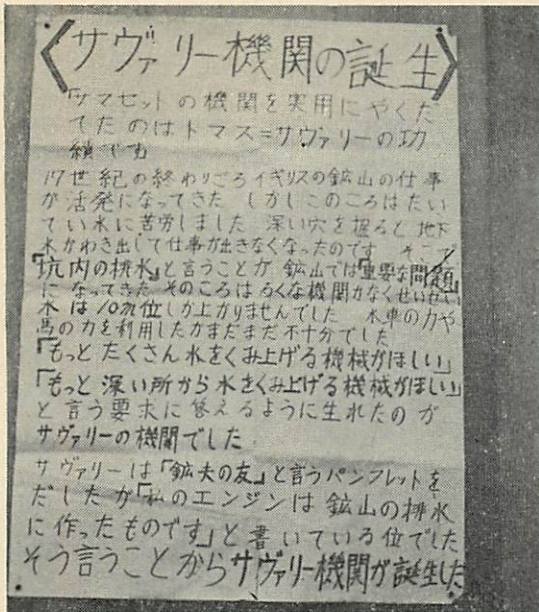 〈サヴァリー機関の誕生〉
サマセットの機関を実用にやくだ
てたのはトマス=サヴァリーの功
績です
17世紀の終わりごろイギリスの鉱山の仕事
が活発になってきた しかしこのころはたい
てい水に苦労しました 深い穴を掘ると地下
水がわき出して仕事が出きなくなったのです そこで
『坑内の排水』と言うことが 鉱山では『重要な問題』
になってきた そのころはろくな機関がなくせいぜい
水は10m位しか上がりませんでした 水車の力や
馬の力を利用したがまだまだ不十分でした
『もっとたくさん水をくみ上げる機械がほしい』
『もっと深い所から水をくみ上げる機械がほしい』
と言う要求に答えるように生れたのが
サヴァリーの機関でした
サヴァリーは『鉱夫の友』と言うパンフレットを
だしたが『私のエンジンは鉱山の排水
に作ったものです』と書いている位でした
そう言うことからサヴァリー機関が誕生した